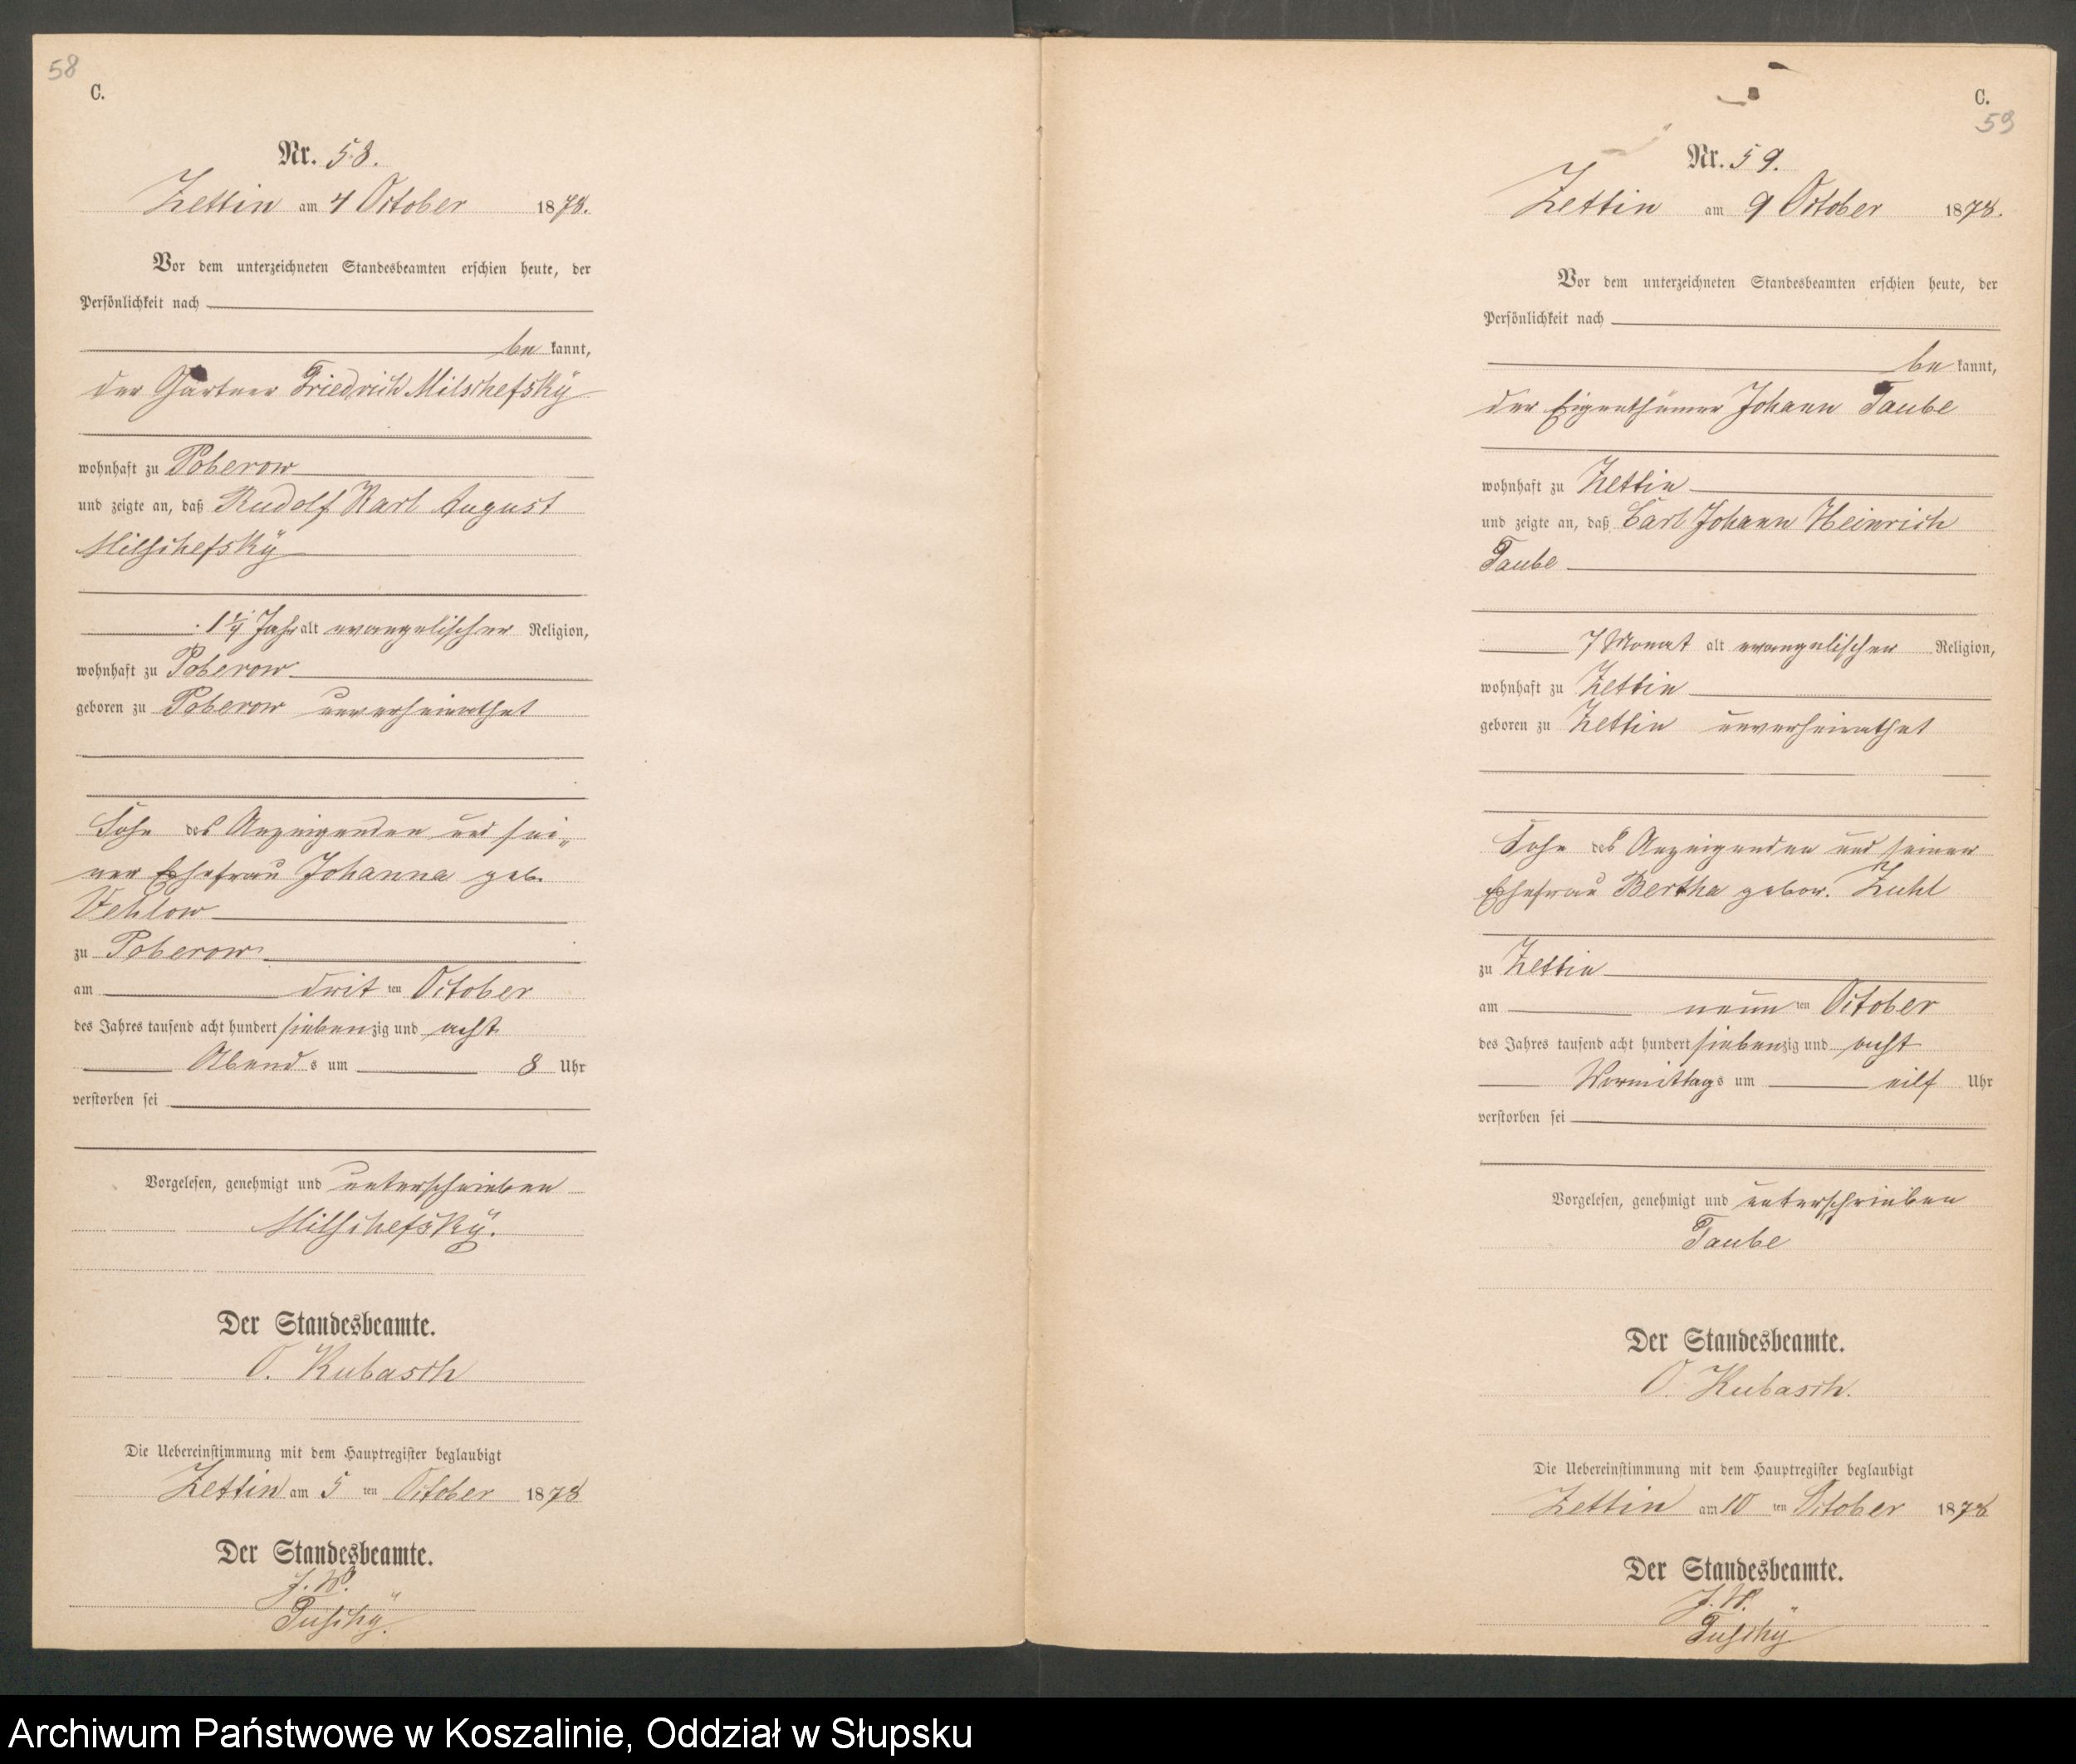 58
C.
Nr. 58.
Zettin am 4 October 1878.
Vor dem unterzeichneten Standesbeamten erschien heute, der
Persönlichkeit nach
be kannt,
der Gärtner Friedrich Milschefsky
wohnhaft zu Poberow
und zeigte an, daß Rudolf Karl August
Milschefsky
1 1/4 Jahr alt evangelischer Religion,
wohnhaft zu Poberow
geboren zu Poberow unverheirathet
Sohn des Anzeigenden und sei„
ner Ehefrau Johanna geb.
Vehlow
zu Poberow
am drit ten October
des Jahres tausend acht hundert siebenzig und acht
Abends um 8 Uhr
verstorben sei
Vorgelesen, genehmigt und unterschrieben
Milschefsky.
Der Standesbeamte.
O. Kubasch
Die Uebereinstimmung mit dem Hauptregister beglaubigt
Zettin am 5 ten October 1878
Der Standesbeamte.
J. V.
C.
59
Nr. 59.
Zettin am 9 October 1878.
Vor dem unterzeichneten Standesbeamten erschien heute, der
Persönlichkeit nach
be kannt,
der Eigenthümer Johann Taube
wohnhaft zu Zettin
und zeigte an, daß Carl Johann Heinrich
Taube
7 Monat alt evangelischer Religion,
wohnhaft zu Zettin
geboren zu Zettin unverheirathet
Sohn des Anzeigenden und seiner
Ehefrau Bertha gebor. Zuhl
zu Zettin
am neun ten October
des Jahres tausend acht hundert siebenzig und acht
Vormittags um eilf Uhr
verstorben sei
Vorgelesen, genehmigt und unterschrieben
Taube
Der Standesbeamte.
O. Kubasch.
Die Uebereinstimmung mit dem Hauptregister beglaubigt
Zettin am 10 ten October 1878
Der Standesbeamte.
J. V.
Archiwum Państwowe w Koszalinie, Oddział w Słupsku